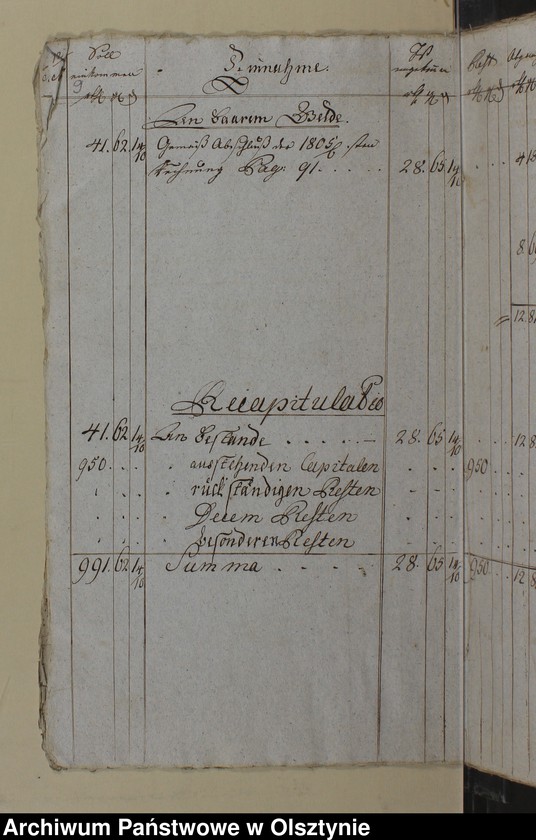 Soll
einkommen
Einnahme.
Ist
eingekommen
Rest
An Baarem Gelde.
41. 62. 14/10 Gemäß Abschluß der 1805/6.sten
Rechnung Pag: 91. . . . . 28. 65. 14/10
Recapitulatio
41. 62. 14/10 An Bestande . . . . . 28. 65. 14/10
950. . . . ausstehenden Capitalien . . . 950
rückständigen Resten
Decem Resten
besonderen Resten
991. 62. 14/10 Summa . . . . 28. 65. 14/10 950
Archiwum Państwowe w Olsztynie